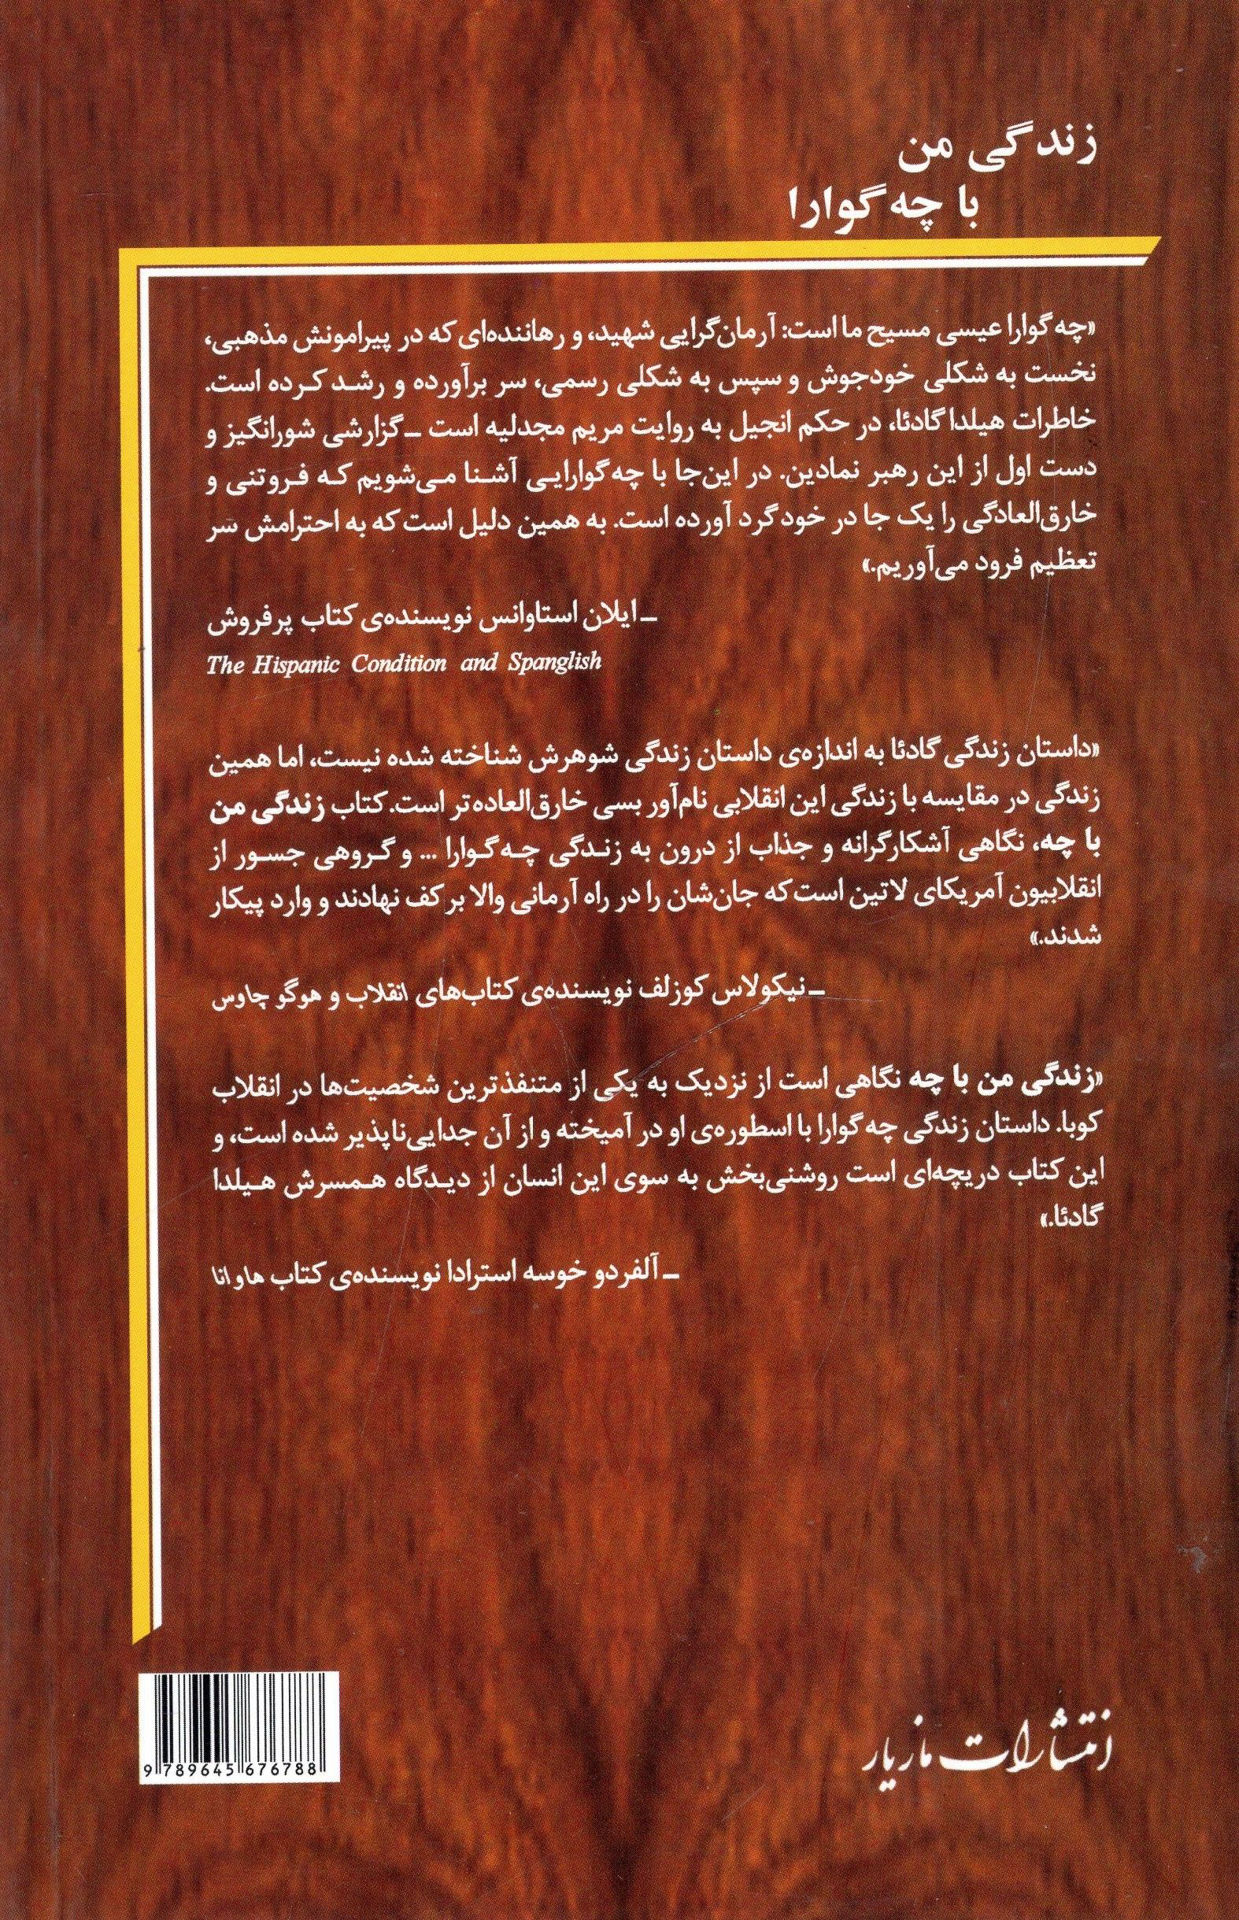 زندگی من
با چه‌گوارا
«چه‌گوارا عیسی مسیح ما است: آرمان‌گرایی شهید، و رهاننده‌ای که در پیرامونش مذهبی،
نخست به شکلی خودجوش و سپس به شکلی رسمی، سر برآورده و رشد کرده است.
خاطرات هیلدا گادئا، در حکم انجیل به روایت مریم مجدلیه است ـ گزارشی شورانگیز و
دست اول از این رهبر نمادین. در این‌جا با چه‌گوارایی آشنا می‌شویم که فروتنی و
خارق‌العادگی را یک جا در خود گرد آورده است. به همین دلیل است که به احترامش سر
تعظیم فرود می‌آوریم.»
ـ ایلان استاوانس نویسنده‌ی کتاب پرفروش
The Hispanic Condition and Spanglish
«داستان زندگی گادئا به اندازه‌ی داستان زندگی شوهرش شناخته شده نیست، اما همین
زندگی در مقایسه با زندگی این انقلابی نام‌آور بسی خارق‌العاده‌تر است. کتاب زندگی من
با چه، نگاهی آشکارگرانه و جذاب از درون به زندگی چه‌گوارا ... و گروهی جسور از
انقلابیون آمریکای لاتین است که جان‌شان را در راه آرمانی والا بر کف نهادند و وارد پیکار
شدند.»
ـ نیکولاس کوزلف نویسنده‌ی کتاب‌های انقلاب و هوگو چاوس
«زندگی من با چه نگاهی است از نزدیک به یکی از متنفذترین شخصیت‌ها در انقلاب
کوبا. داستان زندگی چه‌گوارا با اسطوره‌ی او در آمیخته و از آن جدایی‌ناپذیر شده است، و
این کتاب دریچه‌ای است روشنی‌بخش به سوی این انسان از دیدگاه همسرش هیلدا
گادئا.»
ـ آلفردو خوسه استرادا نویسنده‌ی کتاب هاوانا
انتشارات مازیار
9 789645 676788